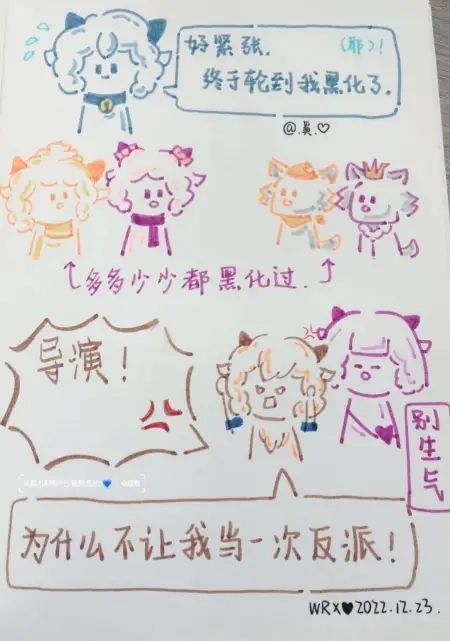 好紧张.
(耶)!
终于轮到我黑化了.
@.奚.♡
多多少少都黑化过.
导演!
别生气
为什么不让我当一次反派!
WRX♥2022.12.23.